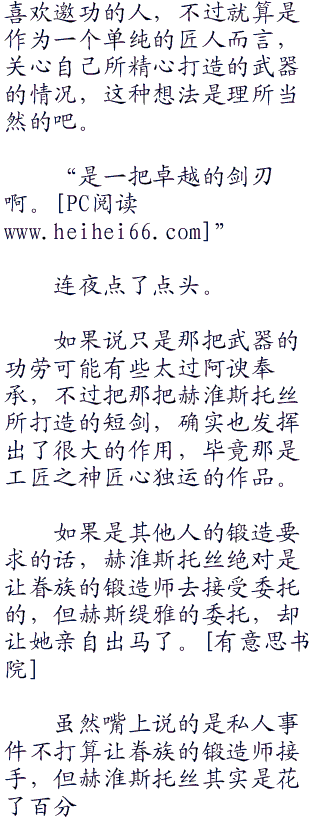 喜欢邀功的人，不过就算是
作为一个单纯的匠人而言，
关心自己所精心打造的武器
的情况，这种想法是理所当
然的吧。
“是一把卓越的剑刃
啊。[PC阅读
www.heihei66.com]”
连夜点了点头。
如果说只是那把武器的
功劳可能有些太过阿谀奉
承，不过把那把赫淮斯托丝
所打造的短剑，确实也发挥
出了很大的作用，毕竟那是
工匠之神匠心独运的作品。
如果是其他人的锻造要
求的话，赫淮斯托丝绝对是
让眷族的锻造师去接受委托
的，但赫斯缇雅的委托，却
让她亲自出马了。[有意思书
院]
虽然嘴上说的是私人事
件不打算让眷族的锻造师接
手，但赫淮斯托丝其实是花
了百分